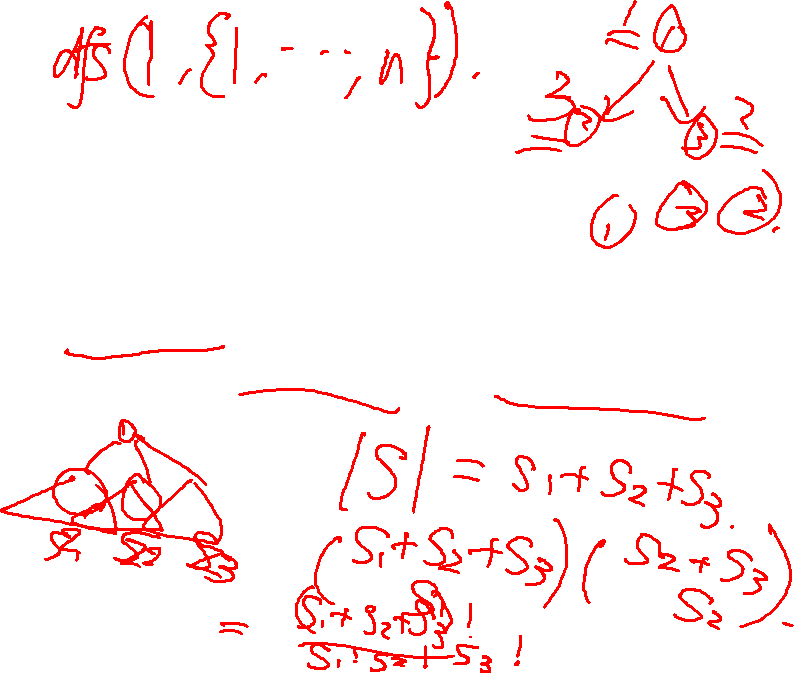 dfs(1,{1,...,n}).
= 1
2
= 2 3 = 2
1 3 2).
|S| = S1+S2+S3.
S1 S2 S3
(S1+S2+S3 S1)(S2+S3 S2).
= S1+S2+S3! / S1! S2! S3!